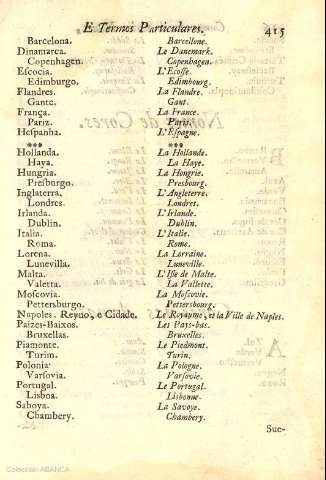 E Termos Particulares. 415
Barcelona. Barcellone.
Dinamarca. Le Danemark.
Copenhagen. Copenhagen.
Escocia. L'Ecosse.
Edimburgo. Edimbourg.
Flandres. La Flandre.
Gante. Gant.
França. La France.
Pariz. Paris.
Hespanha. L'Espagne.
*** ***
Hollanda. La Hollande.
Haya. La Haye.
Hungria. La Hongrie.
Presburgo. Presbourg.
Inglaterra. L'Angleterre.
Londres. Londres.
Irlanda. L'Irlande.
Dublin. Dublin.
Italia. L'Italie.
Roma. Rome.
Lorena. La Lorraine.
Lunevilla. Luneville.
Malta. L'Isle de Malte.
Valetta. La Vallette.
Moscovia. La Moscovie.
Pettersburgo. Pettersbourg.
Napoles. Reyno, e Cidade. Le Royaume, et la Ville de Naples.
Paizes-Baixos. Les Pays-bas.
Bruxellas. Bruxelles.
Piamonte. Le Piedmont.
Turim. Turin.
Polonia. La Pologne.
Varsovia. Varsovie.
Portugal. Le Portugal.
Lisboa. Lisbonne.
Saboya. La Savoye.
Chambery. Chambery.
Sue-
Colección ABANCA